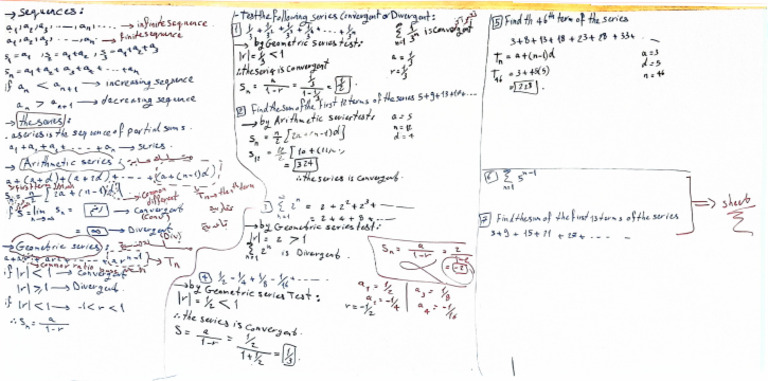 → Sequences:
a₁, a₂, a₃, ....., aₙ, ... → infinite sequence.
a₁, a₂, a₃, ....., aₙ → finite sequence
S₁ = a₁, S₂ = a₁+a₂, S₃ = a₁+a₂+a₃
Sₙ = a₁+a₂+a₃+a₄+ ... +aₙ
if aₙ < aₙ₊₁ → increasing sequence
aₙ > aₙ₊₁ → decreasing sequence
→ the series:
a series is the sequence of partial sums.
a₁ + a₂ + a₃ + ... + aₙ → series.
→ Arithmetic series:
a + (a+d) + (a+2d) + ... + (a+(n-1)d)
→ Convergent (Conv)
→ Divergent (Div)
→ Geometric series:
→ Tₙ
if |r| < 1 → Convergent
|r| ≥ 1 → Divergent.
if |r| < 1 → -1 < r < 1
∴ Sₙ = a/(1-r)
- Test the following series Convergent or Divergent:
1 1/3 + 1/3² + 1/3³ + 1/3⁴ + ..... + 1/3ⁿ
is convergent
→ by Geometric series test:
|r| = 1/3 < 1
a = 1/3
r = 1/3
∴ the series is Convergent
Sₙ = a/(1-r) = (1/3)/(1-1/3) = 1/2
2 Find the sum of the first 12 terms of the series 5+9+13+17+...
→ by Arithmetic series tests
a = 5
n = 12
d = 4
Sₙ = n/2 [2a + (n-1)d]
= 324
∴ the series is convergent.
3 ∑ 2ⁿ = 2 + 2² + 2³ + ...
= 2 + 4 + 8 + ...
→ by Geometric series test:
|r| = 2 > 1
∑ 2ⁿ is Divergent.
Sₙ = a/(1-r) = 2
4 1/2 - 1/4 + 1/8 - 1/16 + ......
→ by Geometric series Test:
|r| = 1/2 < 1
a₁ = 1/2
a₂ = -1/4
r = -1/2
a₃ = 1/8
a₄ = -1/16
∴ the series is Convergent.
S = a/(1-r) = (1/2)/(1+1/2) = 1/3
5 Find th 46th term of the series
3+8+13+18+23+28+33+ ..
Tₙ = a + (n-1)d
a = 3
d = 5
n = 46
T₄₆ = 3 + 45(5)
= 228
6 ∑ 5ⁿ⁻¹
n=1
7 Find the sum of the first 13 terms of the series
3+9+15+21+27+ ......
⇒ sheet